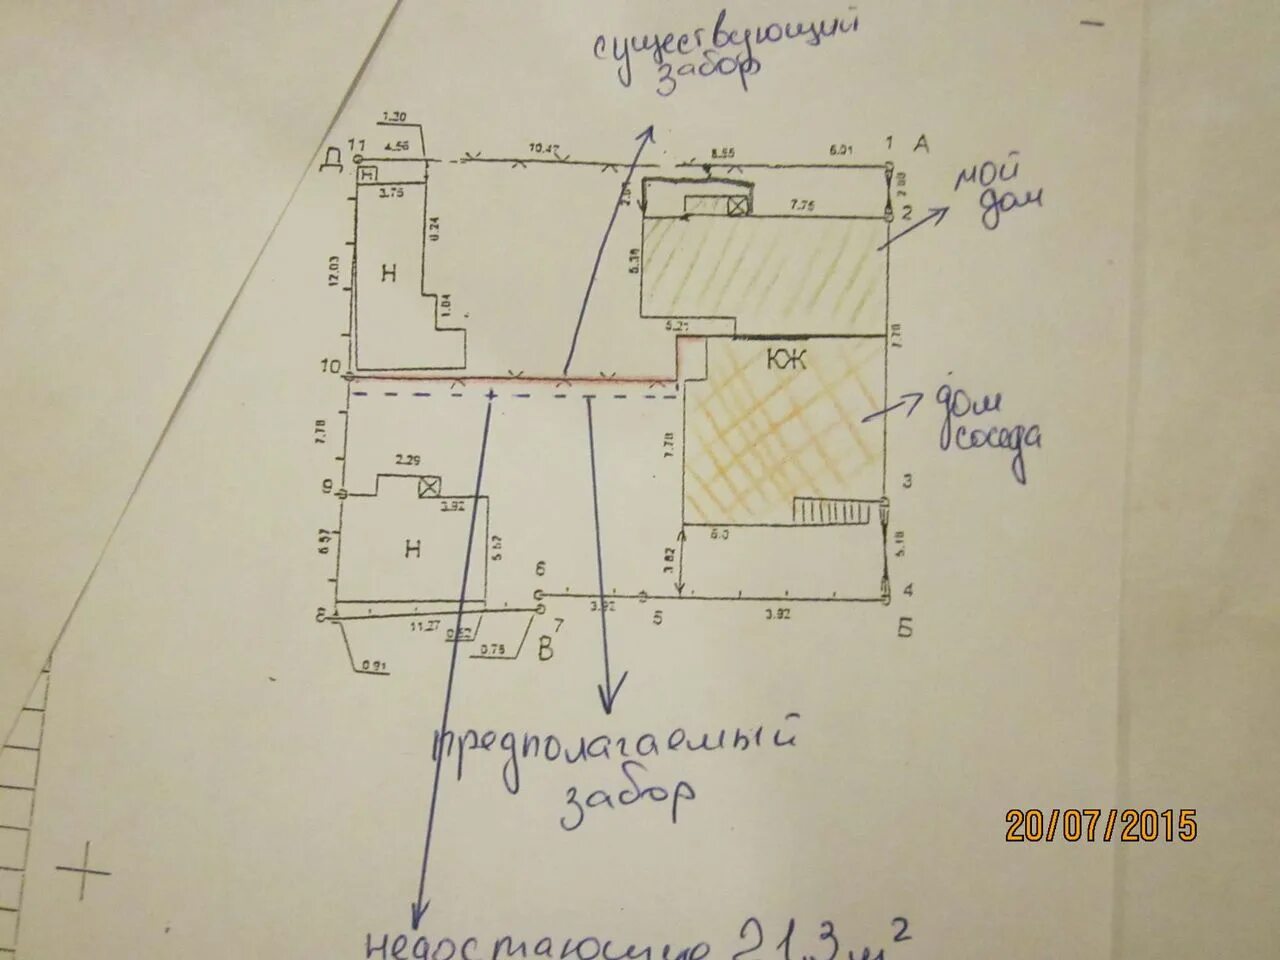 существующий
забор
1.30
Д 11 4.56 10.47 8.55 6.01 1 А
Н
3.75
7.75
2
мой
дом
Н
12.03
1.04
5.38
5.21
7.78
КЖ
10
дом
соседа
7.78
7.78
2.29
9
3.92
3
6.57
Н
5.57
6.0
3.82
5.18
6
3.92
5
3.92
4
Б
8
11.27
0.52
0.75
7
В
0.91
предполагаемый
забор
20/07/2015
недостающие 21,3 м²